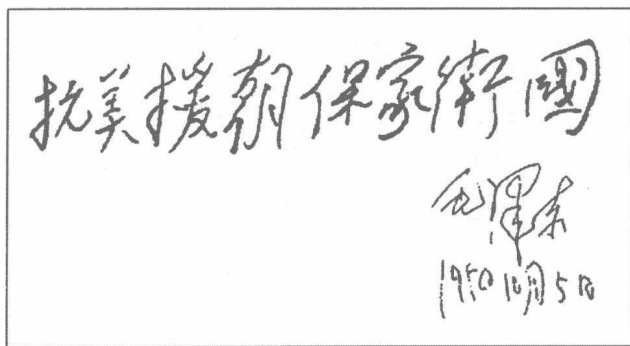 抗美援朝保家衛國
毛澤东
1950 10月5日